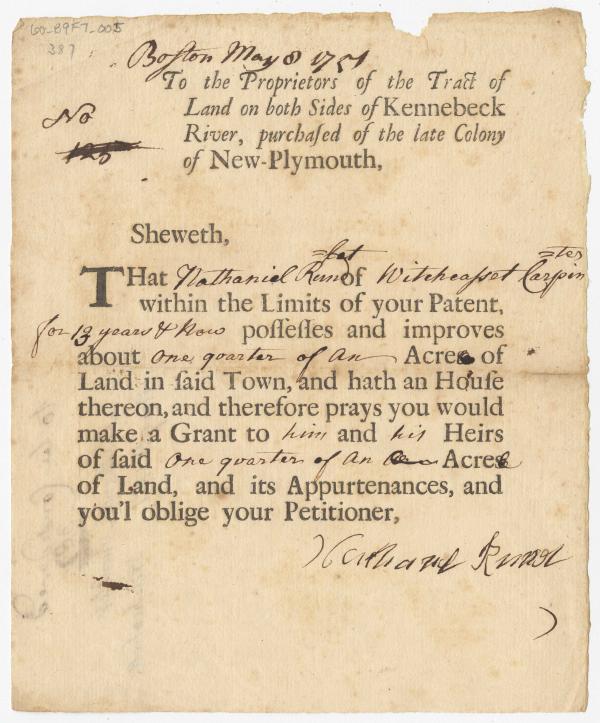 60-89F7-005
387
Boston May 8 1751
To the Proprietors of the Tract of
Land on both Sides of Kennebeck
No
River, purchaſed of the late Colony
of New-Plymouth,
Sheweth,
THat Nathaniel Run=let of Witchcasset Carpin=ter
within the Limits of your Patent,
for 13 years & now poſſeſſes and improves
about one quarter of an Acre of
Land in ſaid Town, and hath an Houſe
thereon, and therefore prays you would
make a Grant to him and his Heirs
of ſaid one quarter of an Acre
of Land, and its Appurtenances, and
you'l oblige your Petitioner,
Nathaniel